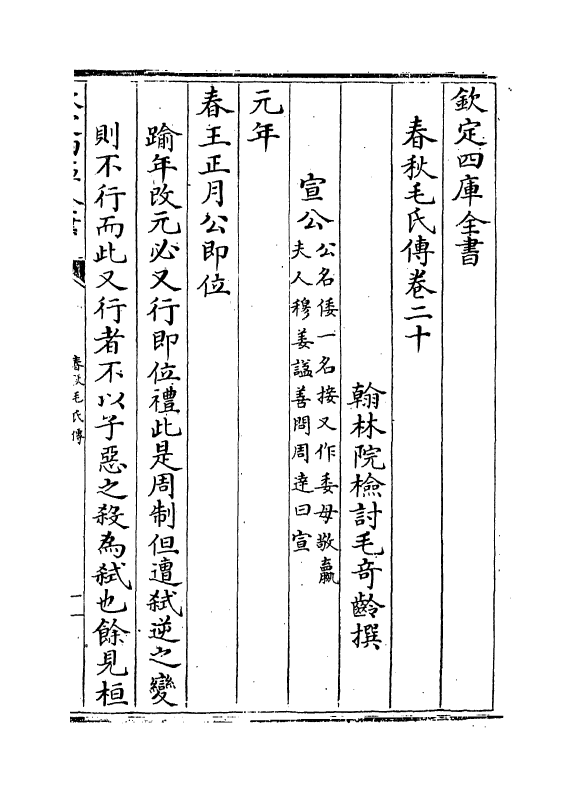 欽定四庫全書
春秋毛氏傳卷二十
翰林院檢討毛竒齡撰
宣公
公名倭一名接又作委母敬嬴
夫人穆姜諡善問周達曰宣
元年
春王正月公即位
踰年改元必又行即位禮此是周制但遭弑逆之變
則不行而此又行者不以子惡之殺為弑也餘見桓
春秋毛氏傳